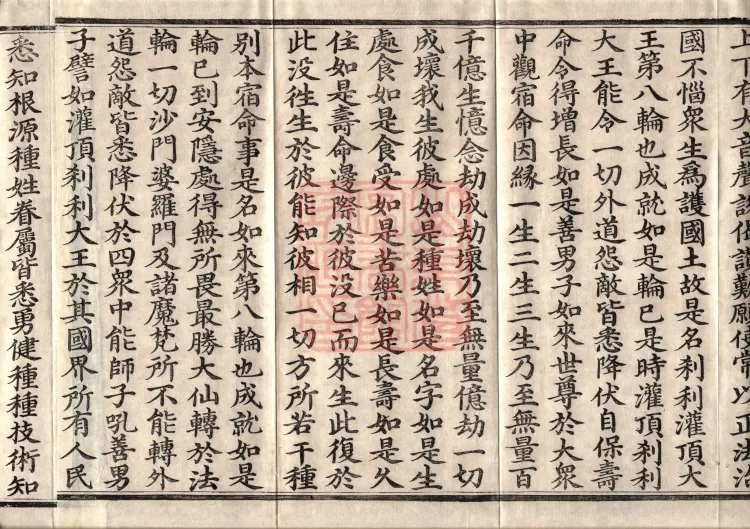 國不惱衆生爲護國土故是名剎利灌頂大
王第八輪也成就如是輪已是時灌頂剎利
大王能令一切外道怨敵皆悉降伏自保壽
命令得增長如是善男子如來世尊於大衆
中觀宿命因緣一生二生三生乃至無量百
千億生憶念劫成劫壞乃至無量億劫一切
成壞我生彼處如是種姓如是名字如是生
處食如是食受如是苦樂如是長壽如是久
住如是壽命邊際於彼没已而來生此復於
此没往生於彼能知彼相一切方所若干種
別本宿命事是名如來第八輪也成就如是
輪已到安隱處得無所畏最勝大仙轉於法
輪一切沙門婆羅門及諸魔梵所不能轉外
道怨敵皆悉降伏於四衆中能師子吼善男
子譬如灌頂剎利大王於其國界所有人民
悉知根源種姓眷屬皆悉勇健種種技術知